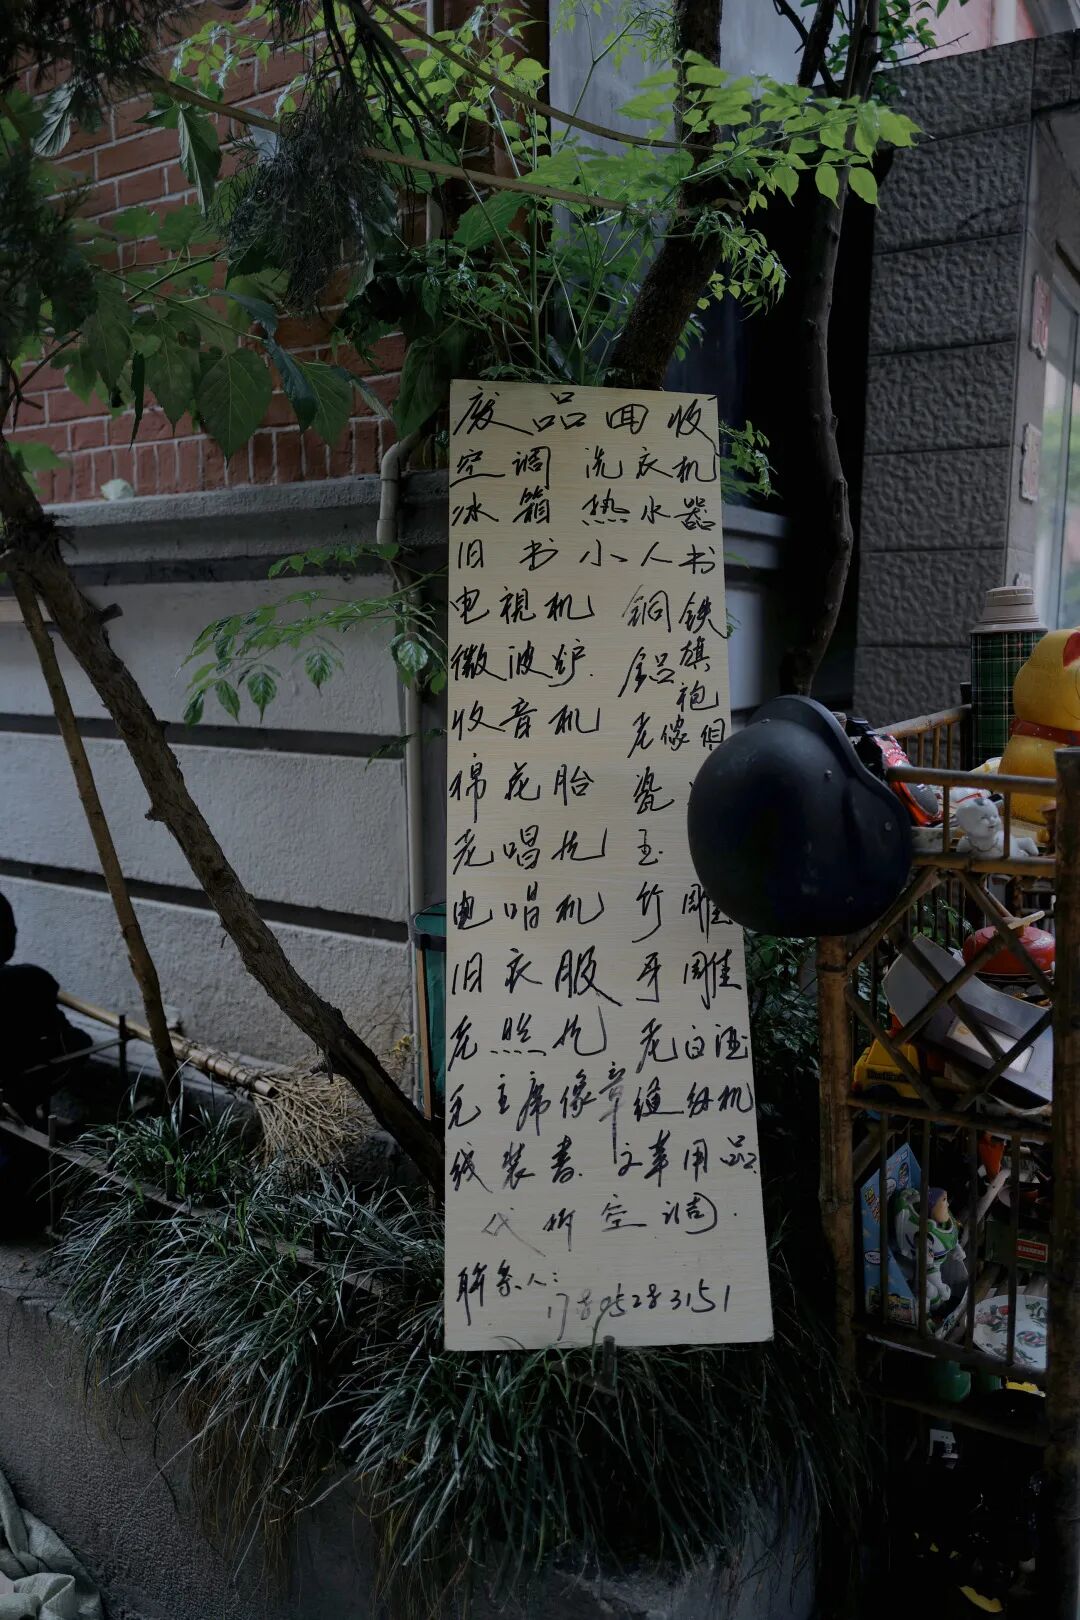 废品回收
空调 洗衣机
冰箱 热水器
旧书 小人书
电視机 銅铁
微波炉. 鋁 旗袍
收音机 老像
棉花胎 瓷
老唱片 玉
电唱机 竹雕
旧衣服 牙雕
老照片 老白酒
毛主席像章 缝纫机
线装書. 文革用品
代拆空调.
联系人:
17895283151